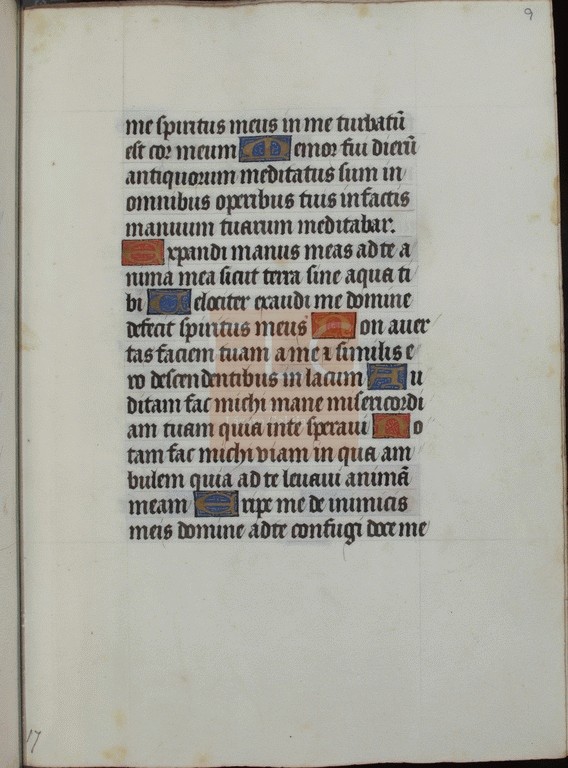 9
me spiritus meus in me turbatū
est cor meum Memor fui dierū
antiquorum meditatus sum in
omnibus operibus tuis in factis
manuum tuarum meditabar.
Expandi manus meas ad te a
nima mea sicut terra sine aqua ti
bi Velociter exaudi me domine
defecit spiritus meus Non auer
tas faciem tuam a me ⁊ similis e
ro descendentibus in lacum Au
ditam fac michi mane misericordi
am tuam quia in te speraui No
tam fac michi viam in qua am
bulem quia ad te leuaui animā
meam Eripe me de inimicis
meis domine ad te confugi doce me
17